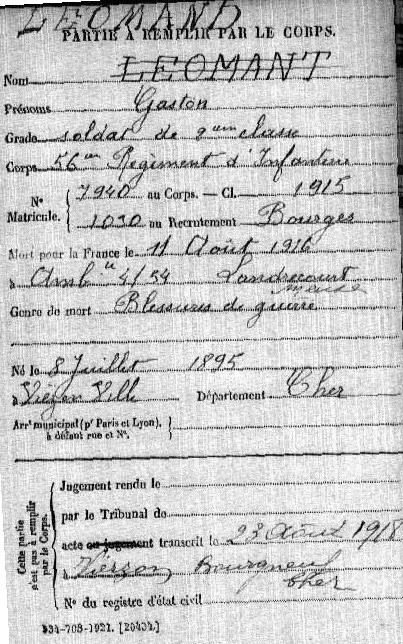 LEOMAND
PARTIE À REMPLIR PAR LE CORPS.
Nom LEOMANT
Prénoms Gaston
Grade soldat de 2eme classe
Corps 56eme Régiment d'Infanterie
N° Matricule. { 7940 au Corps. — Cl. 1915
1030 au Recrutement Bourges
Mort pour la France le 11 Août 1916
à Ambce 4/54 Landrecourt
Meuse
Genre de mort Blessures de guerre
Né le 8 Juillet 1895
à Vierzon Ville Département Cher
Arrt municipal (pr Paris et Lyon), à défaut rue et N°. }
Cette partie n'est pas à remplir par le Corps.
Jugement rendu le
par le Tribunal de
acte ou jugement transcrit le 23 Août 1918
à Vierzon Bourgneuf
Cher
N° du registre d'état civil
534-708-1921. [26434.]